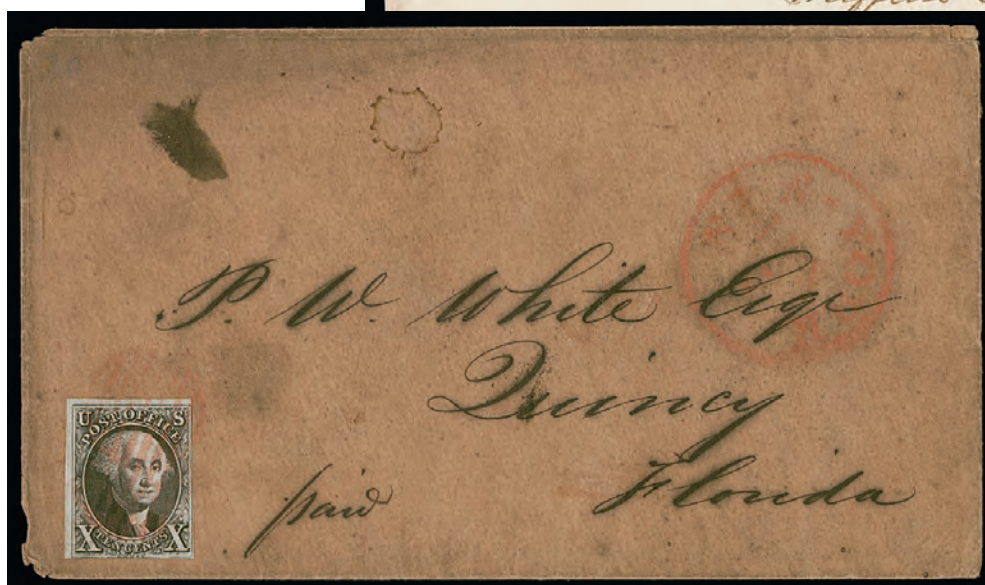 NEW-YORK
P. W. White Esqr
Quincy
Florida
paid
U S
POST OFFICE
X TEN CENTS X